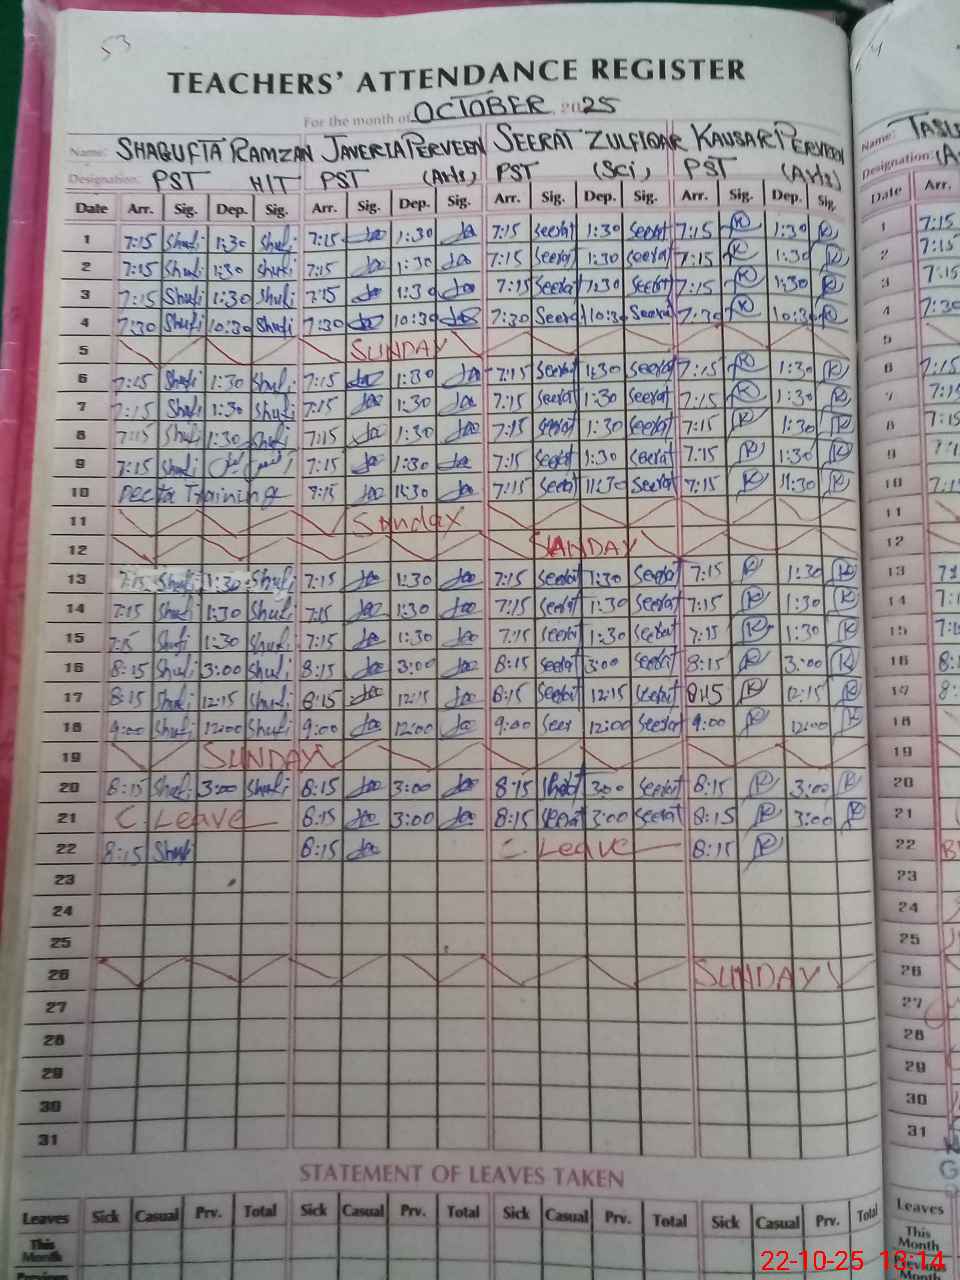 53
TEACHERS' ATTENDANCE REGISTER
For the month of OCTOBER 2025
Name: SHAGUFTA RAMZAN JAVERIA PERVEEN SEERAT ZULFIQAR KAUSAR PERVEEN Name:
Designation: PST HIT PST (Arts) PST (Sci) PST (Arts) Designation:
Date Arr. Sig. Dep. Sig. Arr. Sig. Dep. Sig. Arr. Sig. Dep. Sig. Arr. Sig. Dep. Sig. Date Arr.
1 7:15 Shufi 1:30 Shufi 7:15 1:30 7:15 Seerat 1:30 Seerat 7:15 K 1:30 K 1 7:15
2 7:15 Shufi 1:30 Shufi 7:15 1:30 7:15 Seerat 1:30 Seerat 7:15 K 1:30 K 2 7:15
3 7:15 Shufi 1:30 Shufi 7:15 1:30 7:15 Seerat 1:30 Seerat 7:15 K 1:30 K 3 7:15
4 7:30 Shufi 10:30 Shufi 7:30 10:30 7:30 Seerat 10:30 Seerat 7:30 K 10:30 K 4 7:30
5 SUNDAY 5
6 7:15 Shufi 1:30 Shufi 7:15 1:30 7:15 Seerat 1:30 Seerat 7:15 K 1:30 K 6 7:15
7 7:15 Shufi 1:30 Shufi 7:15 1:30 7:15 Seerat 1:30 Seerat 7:15 K 1:30 K 7 7:15
8 7:15 Shufi 1:30 Shufi 7:15 1:30 7:15 Seerat 1:30 Seerat 7:15 K 1:30 K 8 7:15
9 7:15 Shufi 7:15 1:30 7:15 Seerat 1:30 Seerat 7:15 K 1:30 K 9
10 Pecta Training 7:15 11:30 7:15 Seerat 11:30 Seerat 7:15 K 11:30 K 10
11 Sunday 11
12 SUNDAY 12
13 7:15 Shufi 1:30 Shufi 7:15 1:30 7:15 Seerat 1:30 Seerat 7:15 K 1:30 K 13
14 7:15 Shufi 1:30 Shufi 7:15 1:30 7:15 Seerat 1:30 Seerat 7:15 K 1:30 K 14
15 7:15 Shufi 1:30 Shufi 7:15 1:30 7:15 Seerat 1:30 Seerat 7:15 K 1:30 K 15
16 8:15 Shufi 3:00 Shufi 8:15 3:00 8:15 Seerat 3:00 Seerat 8:15 K 3:00 K 16
17 8:15 Shufi 12:15 Shufi 8:15 12:15 8:15 Seerat 12:15 Seerat 8:15 K 12:15 K 17
18 9:00 Shufi 12:00 Shufi 9:00 12:00 9:00 Seer 12:00 Seerat 9:00 K 12:00 K 18
19 SUNDAY 19
20 8:15 Shufi 3:00 Shufi 8:15 3:00 8:15 3:00 Seerat 8:15 K 3:00 K 20
21 C. Leave 8:15 3:00 8:15 Seerat 3:00 Seerat 8:15 K 3:00 K 21
22 8:15 Shuf 8:15 C. Leave 8:15 K 22
23 23
24 24
25 25
26 SUNDAY 26
27 27
28 28
29 29
30 30
31 31
STATEMENT OF LEAVES TAKEN
Leaves Sick Casual Prv. Total Sick Casual Prv. Total Sick Casual Prv. Total Sick Casual Prv. Total Leaves
This Month This Month
Previous Previous Month
22-10-25 13:14